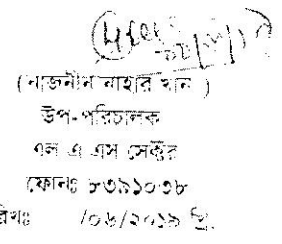 (নাজনীন নাহার খান )
উপ-পরিচালক
এল এ এস সেক্টর
ফোনঃ ৮৩৯১০৩৮
রিখঃ /০৬/২০১৯ খ্রি.